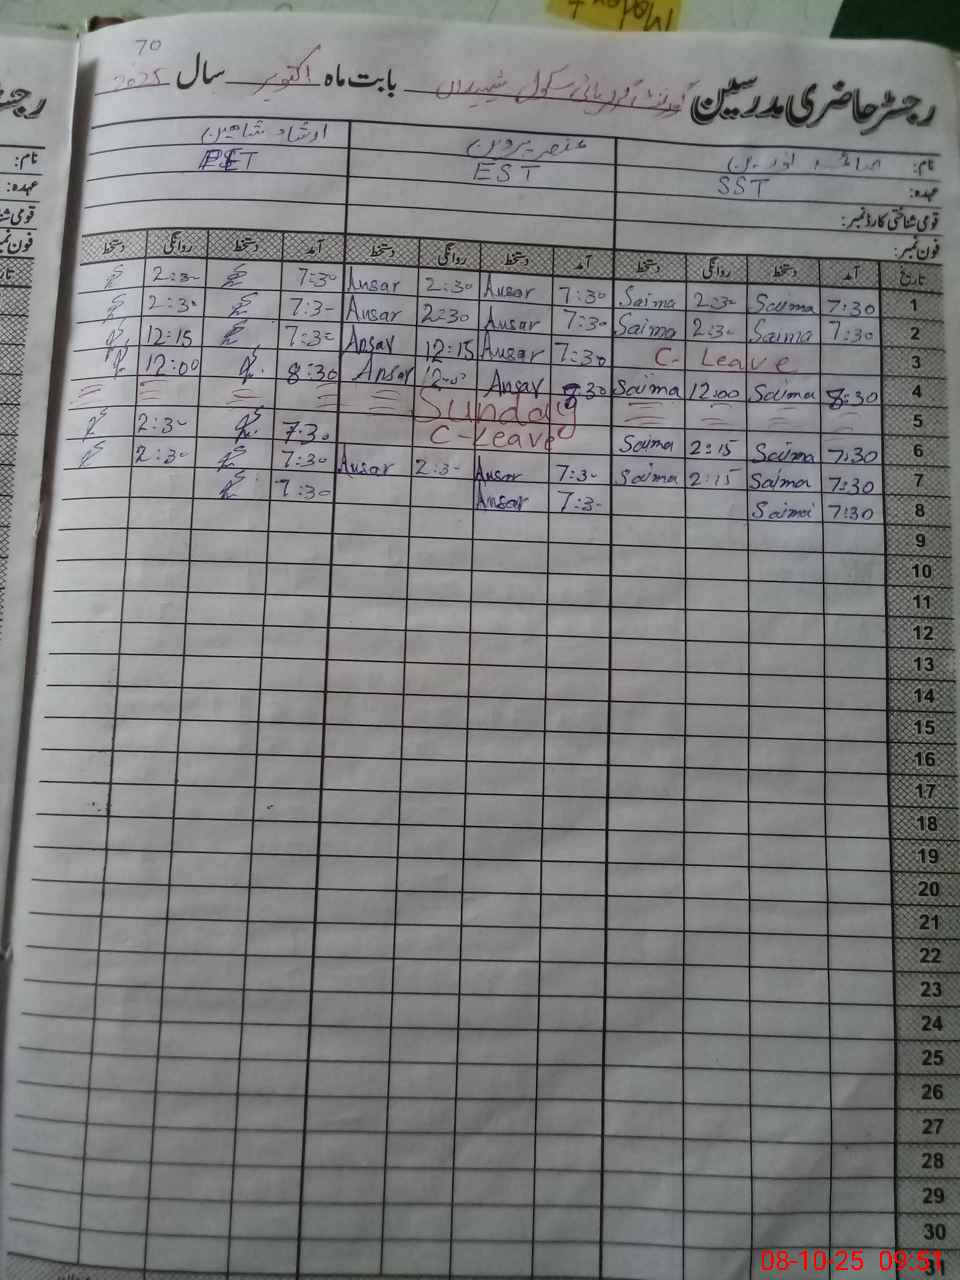 70
رجسٹر حاضری مدرسین گورنمنٹ گرلز ہائی سکول بابت ماہ اکتوبر سال 2025
نام: عنصر پروین ارشاد شاہین
عہدہ: SST EST PST
قومی شناختی کارڈ نمبر:
فون نمبر:
تاریخ آمد دستخط روانگی دستخط آمد دستخط روانگی دستخط آمد دستخط روانگی دستخط
1 7:30 Saima 2:30 Saima 7:30 Ansar 2:30 Ansar 7:30 2:30
2 7:30 Saima 2:30 Saima 7:30 Ansar 2:30 Ansar 7:30 2:30
3 C- Leave 7:30 Ansar 12:15 Ansar 7:30 12:15
4 8:30 Saima 12:00 Saima 8:30 Ansar 12:00 Ansar 8:30 12:00
5 Sunday
6 7:30 Saima 2:15 Saima C-Leave 7:30 2:30
7 7:30 Saima 2:15 Saima 7:30 Ansar 2:30 Ansar 7:30 2:30
8 7:30 Saima 7:30 Ansar 7:30
9
10
11
12
13
14
15
16
17
18
19
20
21
22
23
24
25
26
27
28
29
30
31
08-10-25 09:51